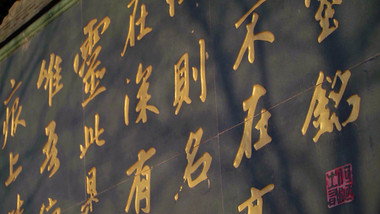 室銘
不在高
則名
在深有
靈此是
惟吾
痕上